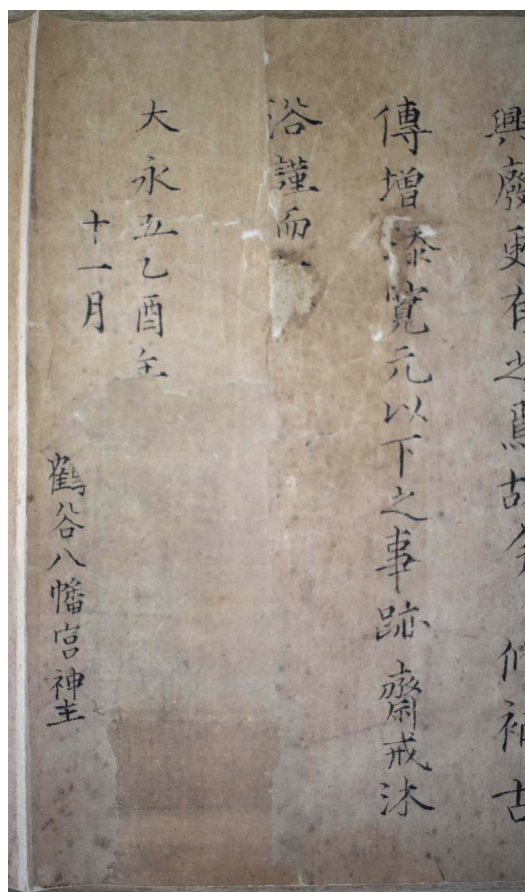 興廢更有之焉古今
傳增添寛元以下之事跡齋戒沐
浴謹而
大永五乙酉年
十一月
鶴谷八幡宮神主